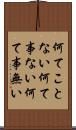 何てこと
ない何て
事ない何
て事無い